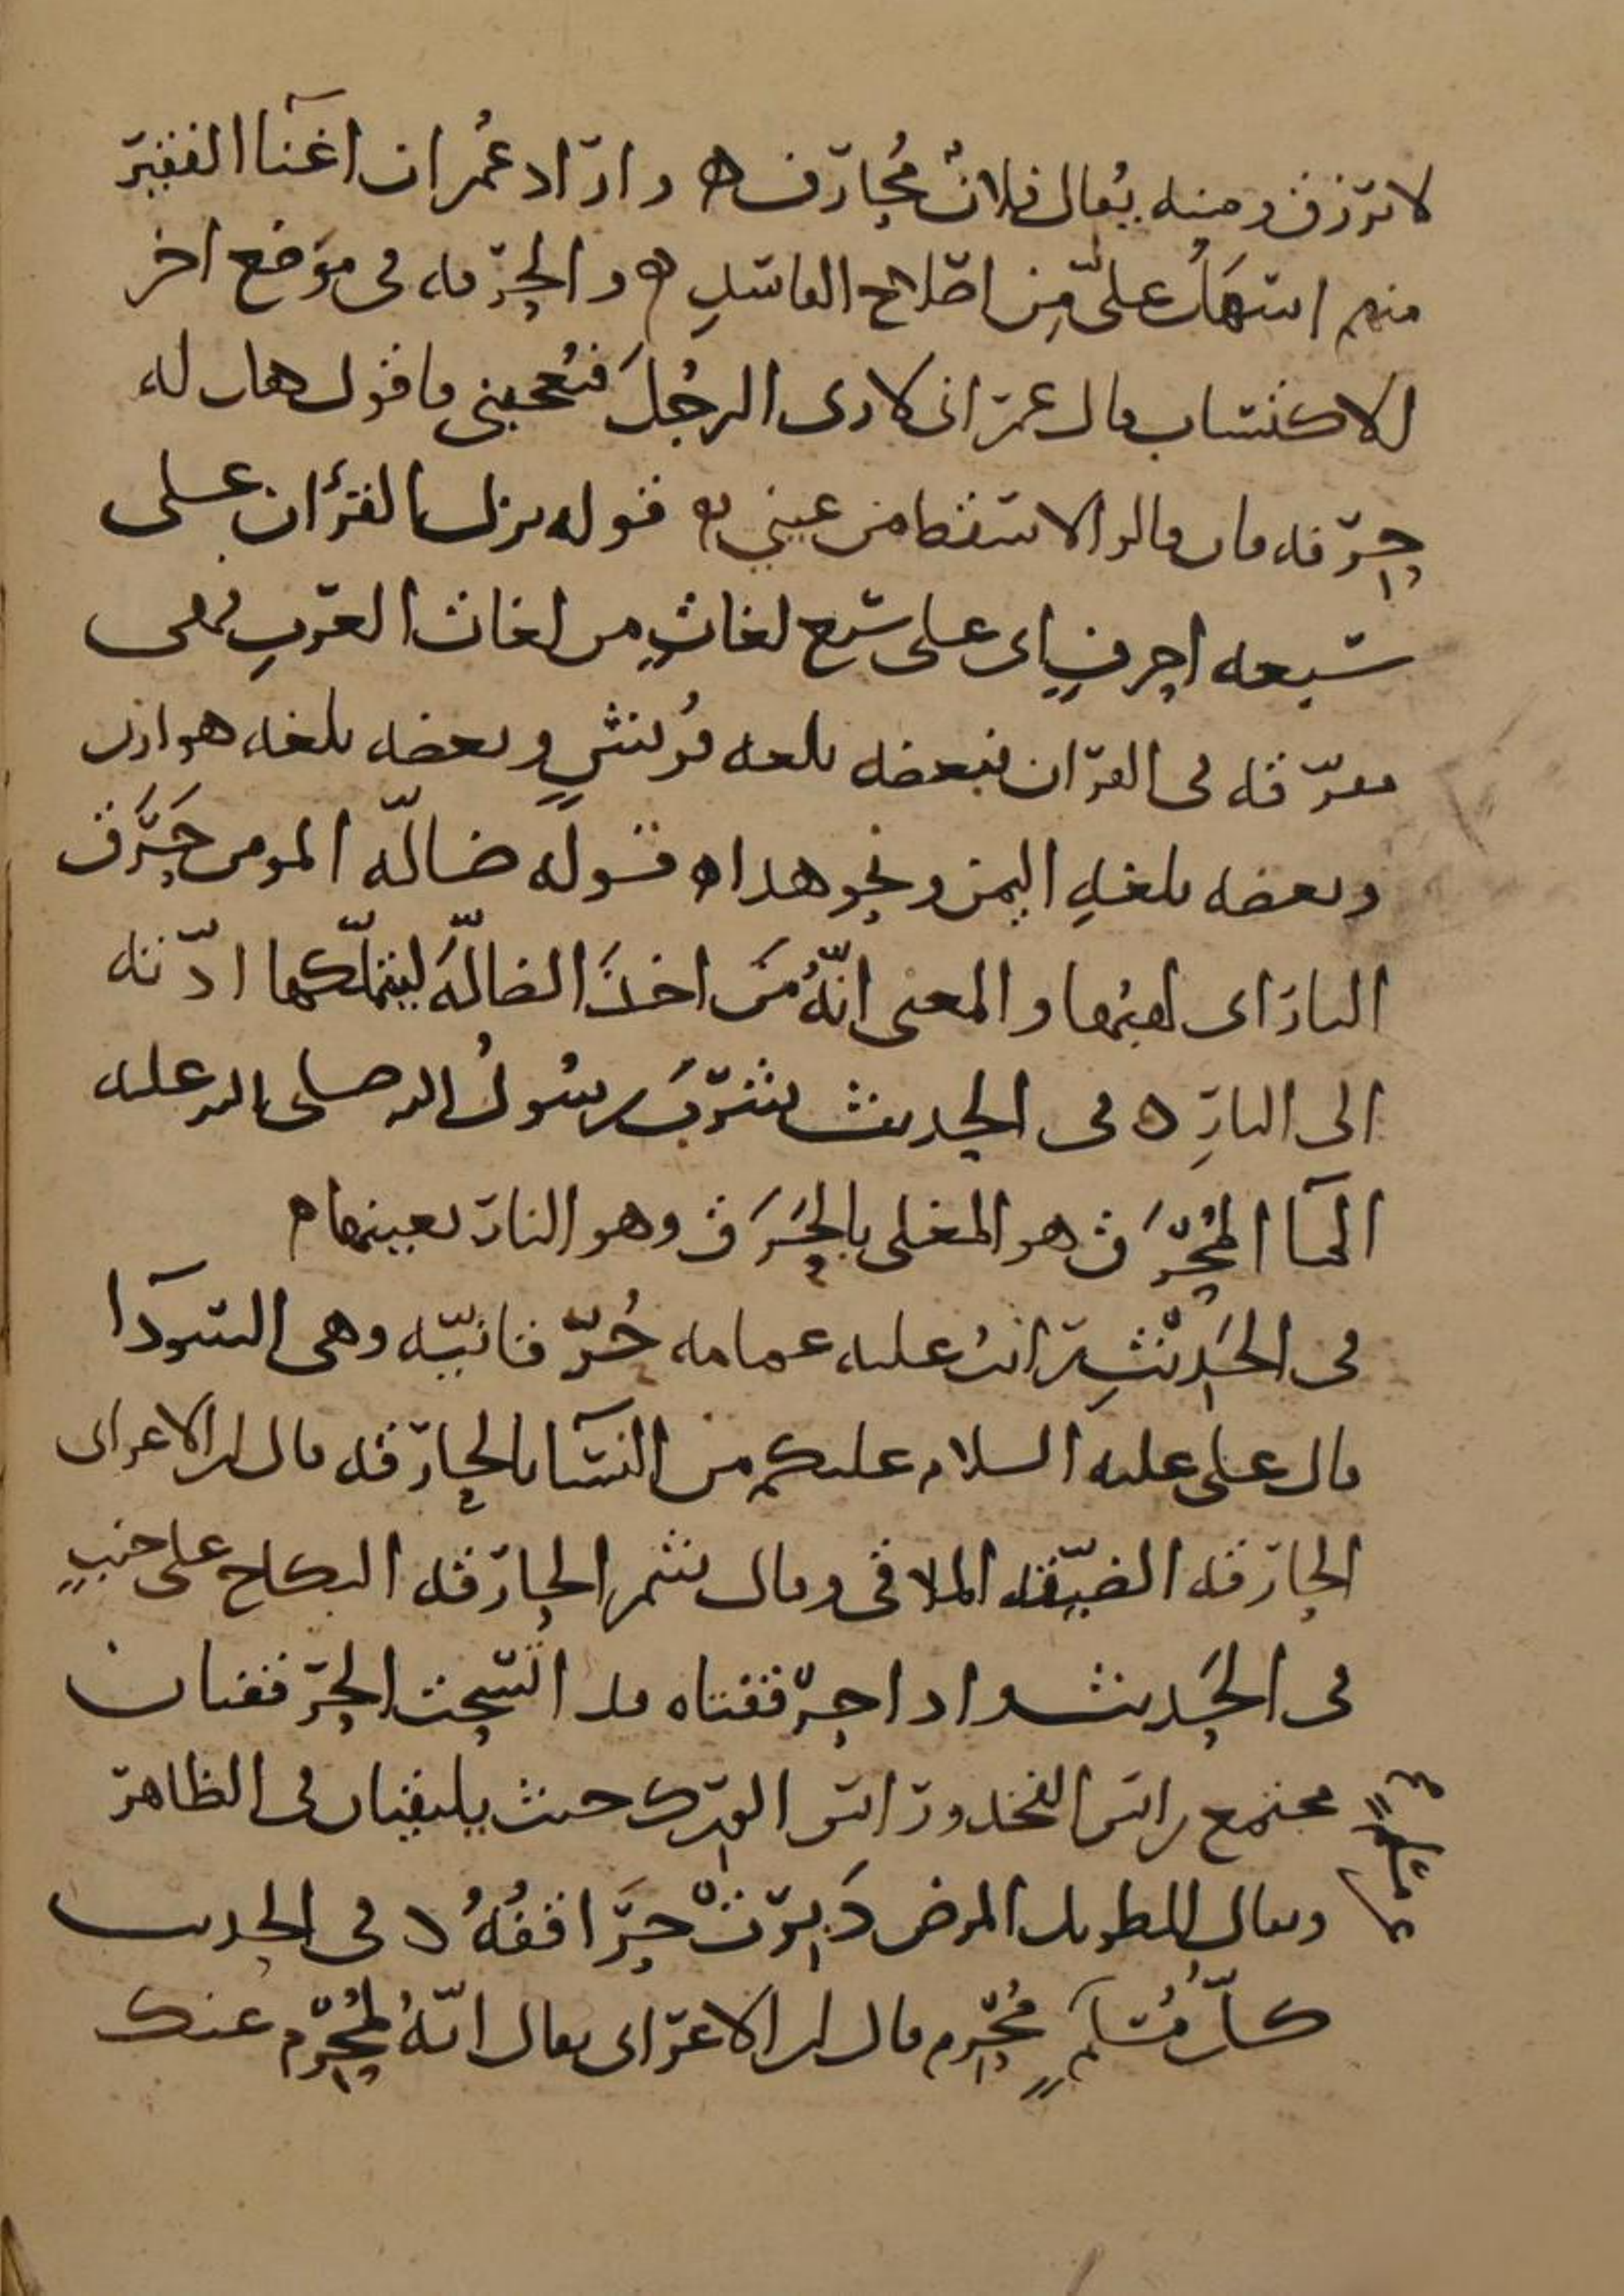 لا يرزق ومنه يقال فلانٌ مُحارَف ه واراد عُمر ان اغنآ الفقير
منهم اسهل علىّ مِن اصلاح الفاسدِ ه والحِرفه فى موضع اخر
الاكتساب قال عمر انى لارى الرجُلَ فيُعجبنى فاقول هل له
حِرفه فان قالوا لا سقط من عينى ه قوله نزل القرأن على
سبعه احرفٍ اى على سبع لغاتٍ من لغات العربِ فهى
مفرّقه فى القران فبعضه بلغه قُريشٍ وبعضه بلغه هوازن
وبعضه بلغهِ اليمن ونحو هذا ه قوله ضالّه المومن حَرَق
النار اى لهبُها والمعنى انّهُ مَن اخذَ الضالّهَ ليتملّكها ادّته
الى النارِ ه فى الحديث شرب رسُولُ الله صلى الله عليه
المآ المُحْرَق هو المغلى بالحَرَق وهو النار بعينها ه
فى الحَديثِ رايتُ عليه عمامه حُرّقانيّه وهى السودآ
قال على عليه السلام عليكم من النسآ بالحارقه قال ابن الاعرابى
الحارقه الضيّقه الملاقى وقال شمر الحارقه النكاح على جنبٍ
فى الحَديث واذا حرقفتاه قد انسحت الحرقفتان
مجتمع راس الفخذ وراس الورك حيث يلتقيان فى الظاهر
ويقال للطويل المرض دَبِرَتْ حَرَاقفُهُ ه فى الحديث
كلّ مُسلمٍ مُحْرِم قال ابن الاعرابى يقال انّهُ لمُحْرِم عنك